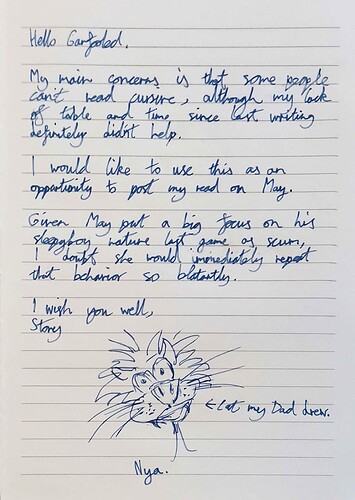 Hello Garfooled.
My main concerns is that some people
can't read cursive, although my lack
of table and time since last writing
definitely didn't help.
I would like to use this as an
opportunity to post my read on May.
Given May put a big focus on his
sleepyboy nature last game as scum,
I doubt she would immediately repeat
that behavior so blatantly.
I wish you well,
Story
←Cat my Dad drew.
Nya.